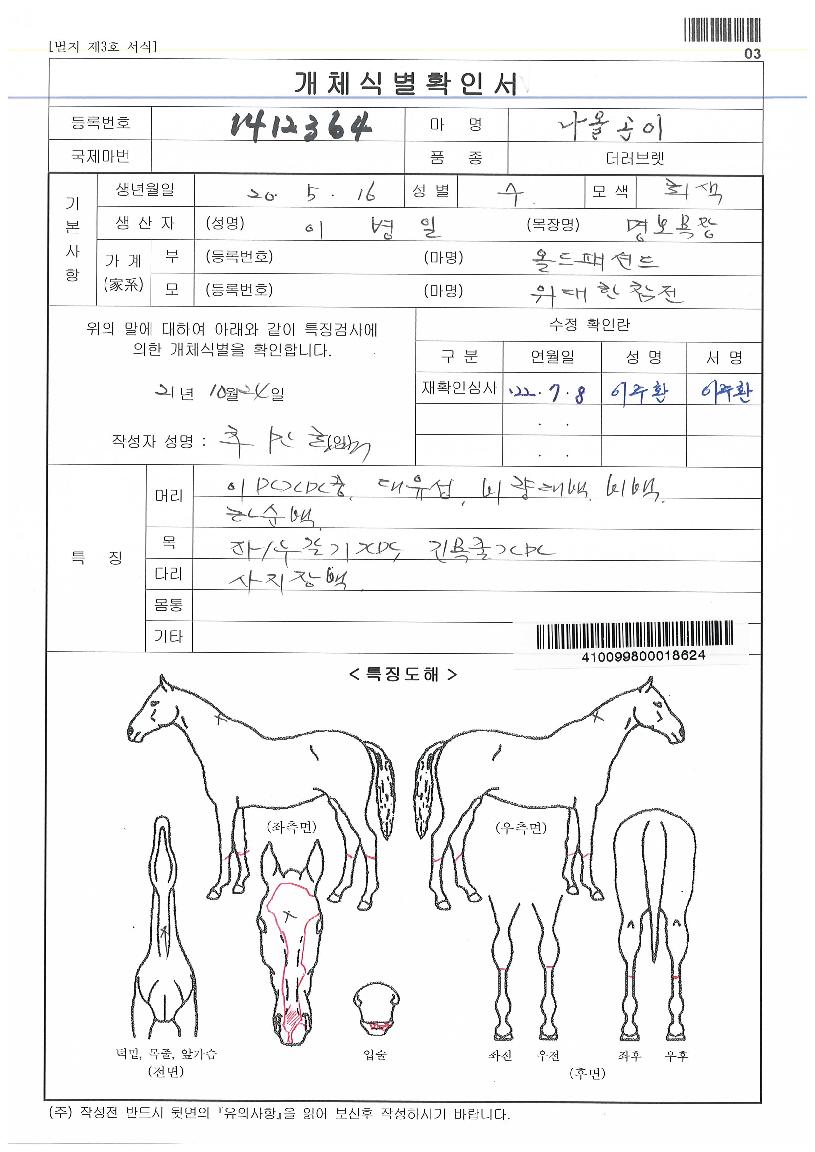 [별지 제3호 서식]
03
개체식별확인서
등록번호 1412364 마 명 나올곧이
국제마번 품 종 더러브렛
기본사항
생년월일 20. 5. 16 성별 수 모색 회색
생산자 (성명) 이 병 일 (목장명) 명보목장
가계 (家系)
부 (등록번호) (마명) 올드패션드
모 (등록번호) (마명) 위대한참전
위의 말에 대하여 아래와 같이 특징검사에
의한 개체식별을 확인합니다.
21년 10월 24일
작성자 성명 :
수정 확인란
구분 연월일 성명 서명
재확인심사 '22. 7. 8 이주환 이주환
. .
. .
특 징
머리 대유성, 비량대백, 비백,
순백
목
다리 사지장백
몸통
기타
410099800018624
< 특징도해 >
(좌측면)
(우측면)
턱밑, 목줄, 앞가슴
(전면)
입술
좌전 우전
좌후 우후
(후면)
(주) 작성전 반드시 뒷면의 『유의사항』을 읽어 보신후 작성하시기 바랍니다.